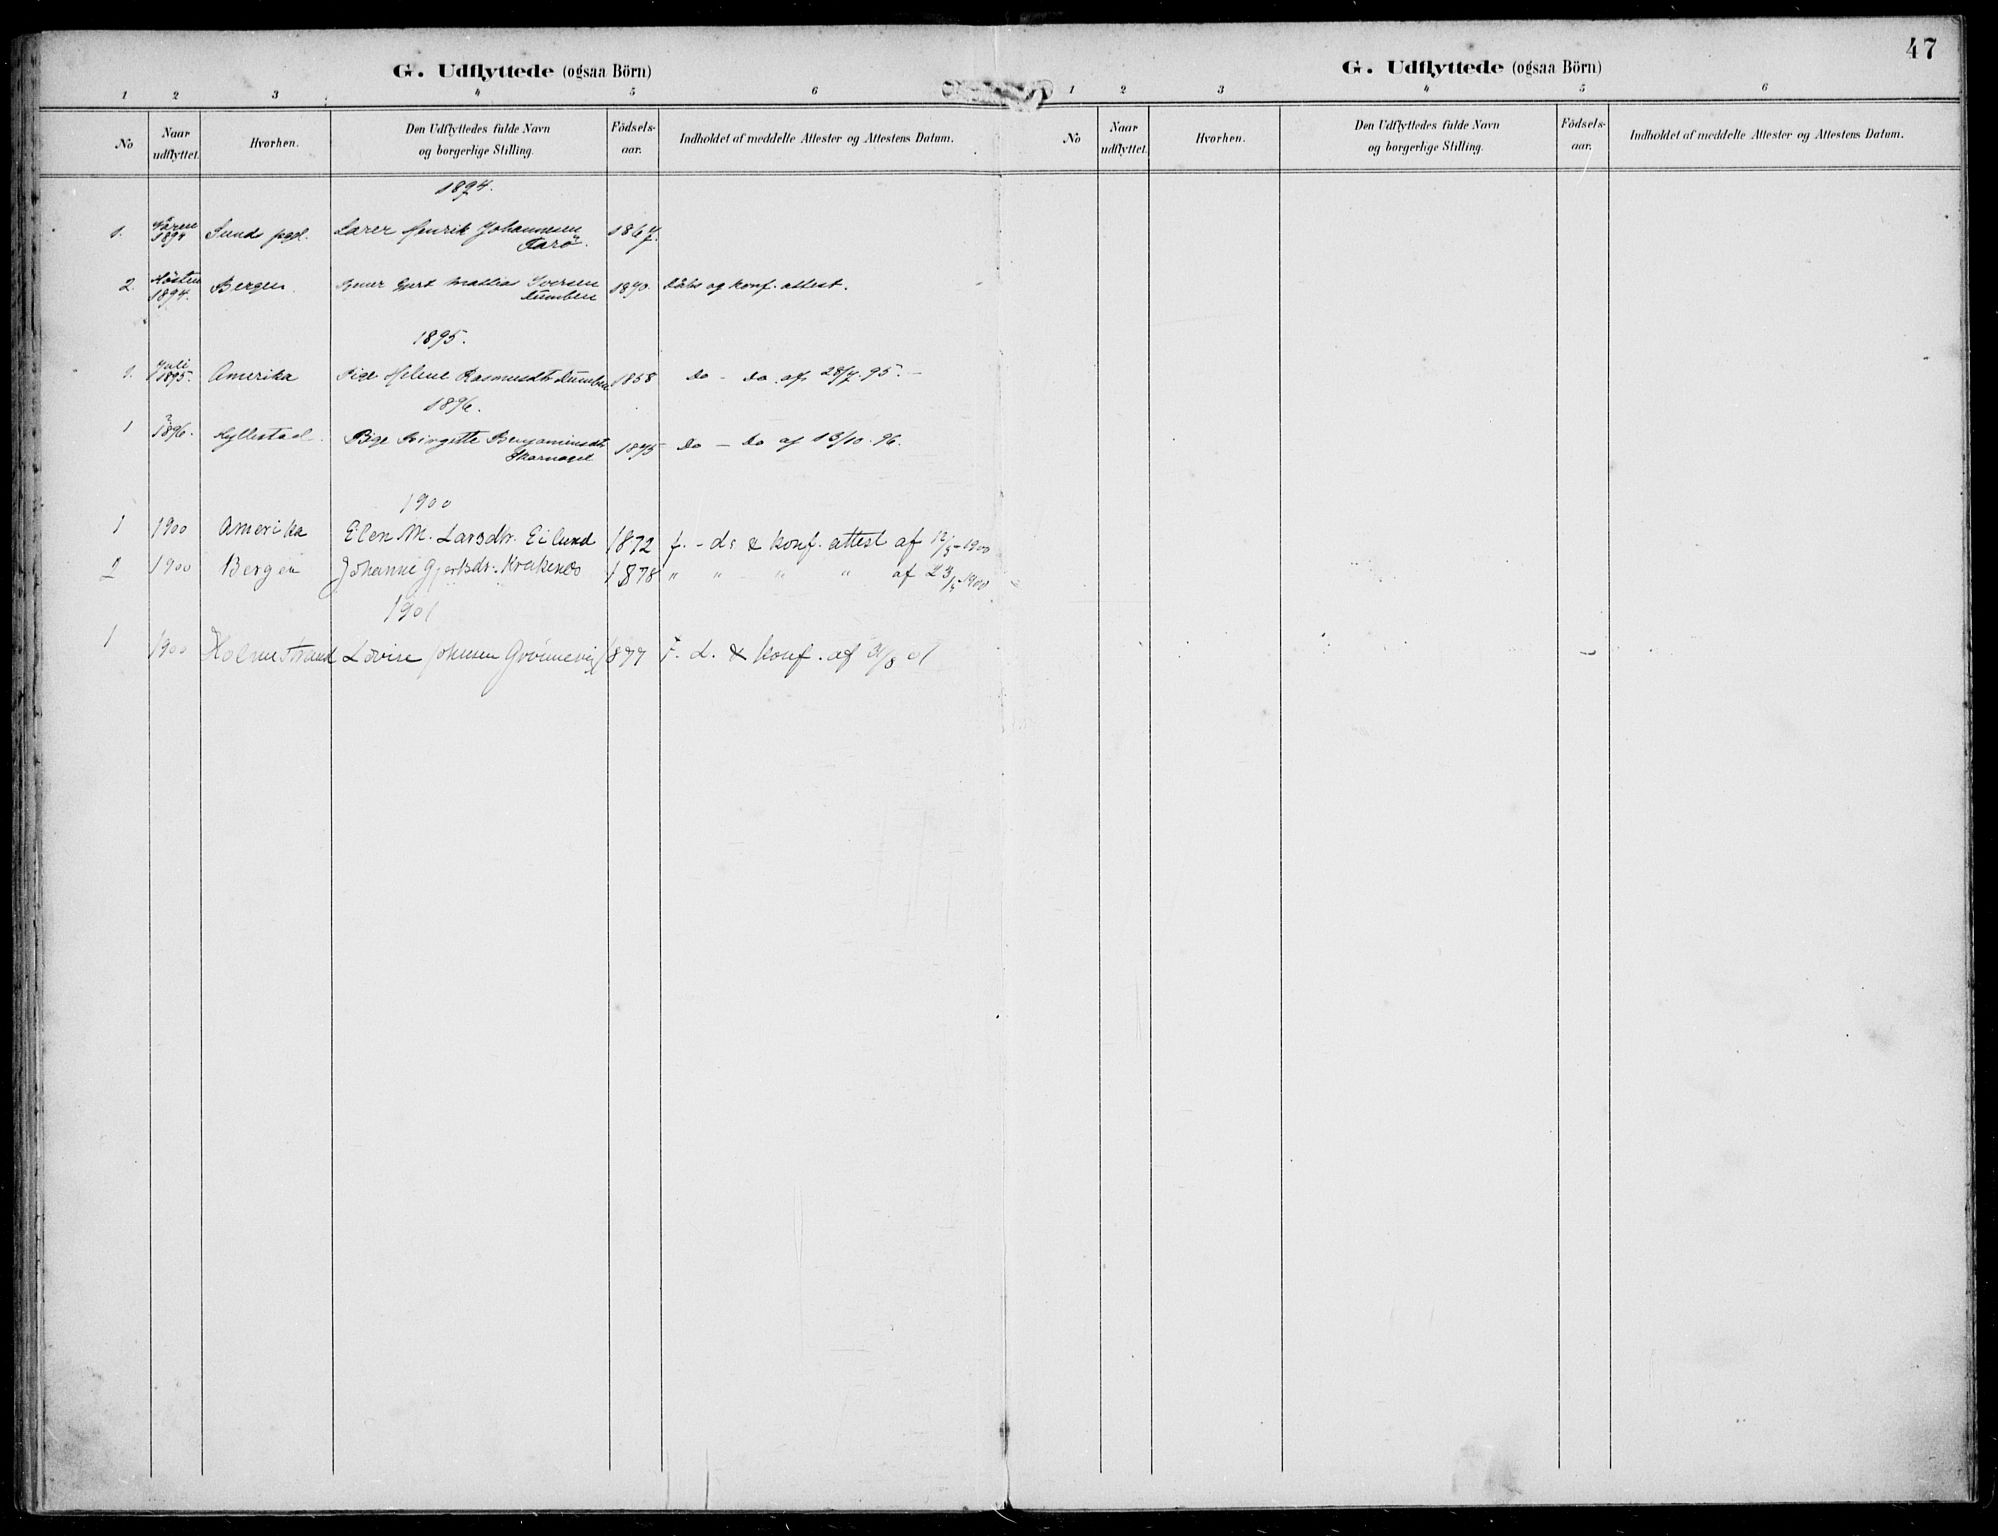 47
G. Udflyttede (ogsaa Börn)
1 2 3 4 5 6
No
Naar udflyttet.
Hvorhen.
Den Udflyttedes fulde Navn og borgerlige Stilling.
Födsels-aar.
Indholdet af meddelte Attester og Attestens Datum.
1894.
1. Våren 1894 Sund pgl. Lærer Henrik Johannesen Farö. 1867.
2. Hösten 1894. Bergen. Mattias Iversen Dumben 1870. Dåbs og konf. attest.
1895.
1. Juli 1895. Amerika Pige Helene Rasmusdtr Dumben 1858 Do - Do. af 28/7. 95. -
1896.
1 1896. Hyllestad. Pige Birgitte Benjaminsdtr 1875 Do - Do af 13/10. 96.
1900
1 1900 Amerika Elen M. Larsdtr. Eilund 1872 f. - d. & konf. attest af 12/5-1900
2 1900 Bergen Johanne Gjertsdr. Krakenes 1878 " " " " af 23/5-1900.
1901
1 1900 Holmestrand Lovise Johnsen Grönnevig 1877 F. d. & konf. af 31/8 01
G. Udflyttede (ogsaa Börn)
1 2 3 4 5 6
No
Naar udflyttet.
Hvorhen.
Den Udflyttedes fulde Navn og borgerlige Stilling.
Födsels-aar.
Indholdet af meddelte Attester og Attestens Datum.